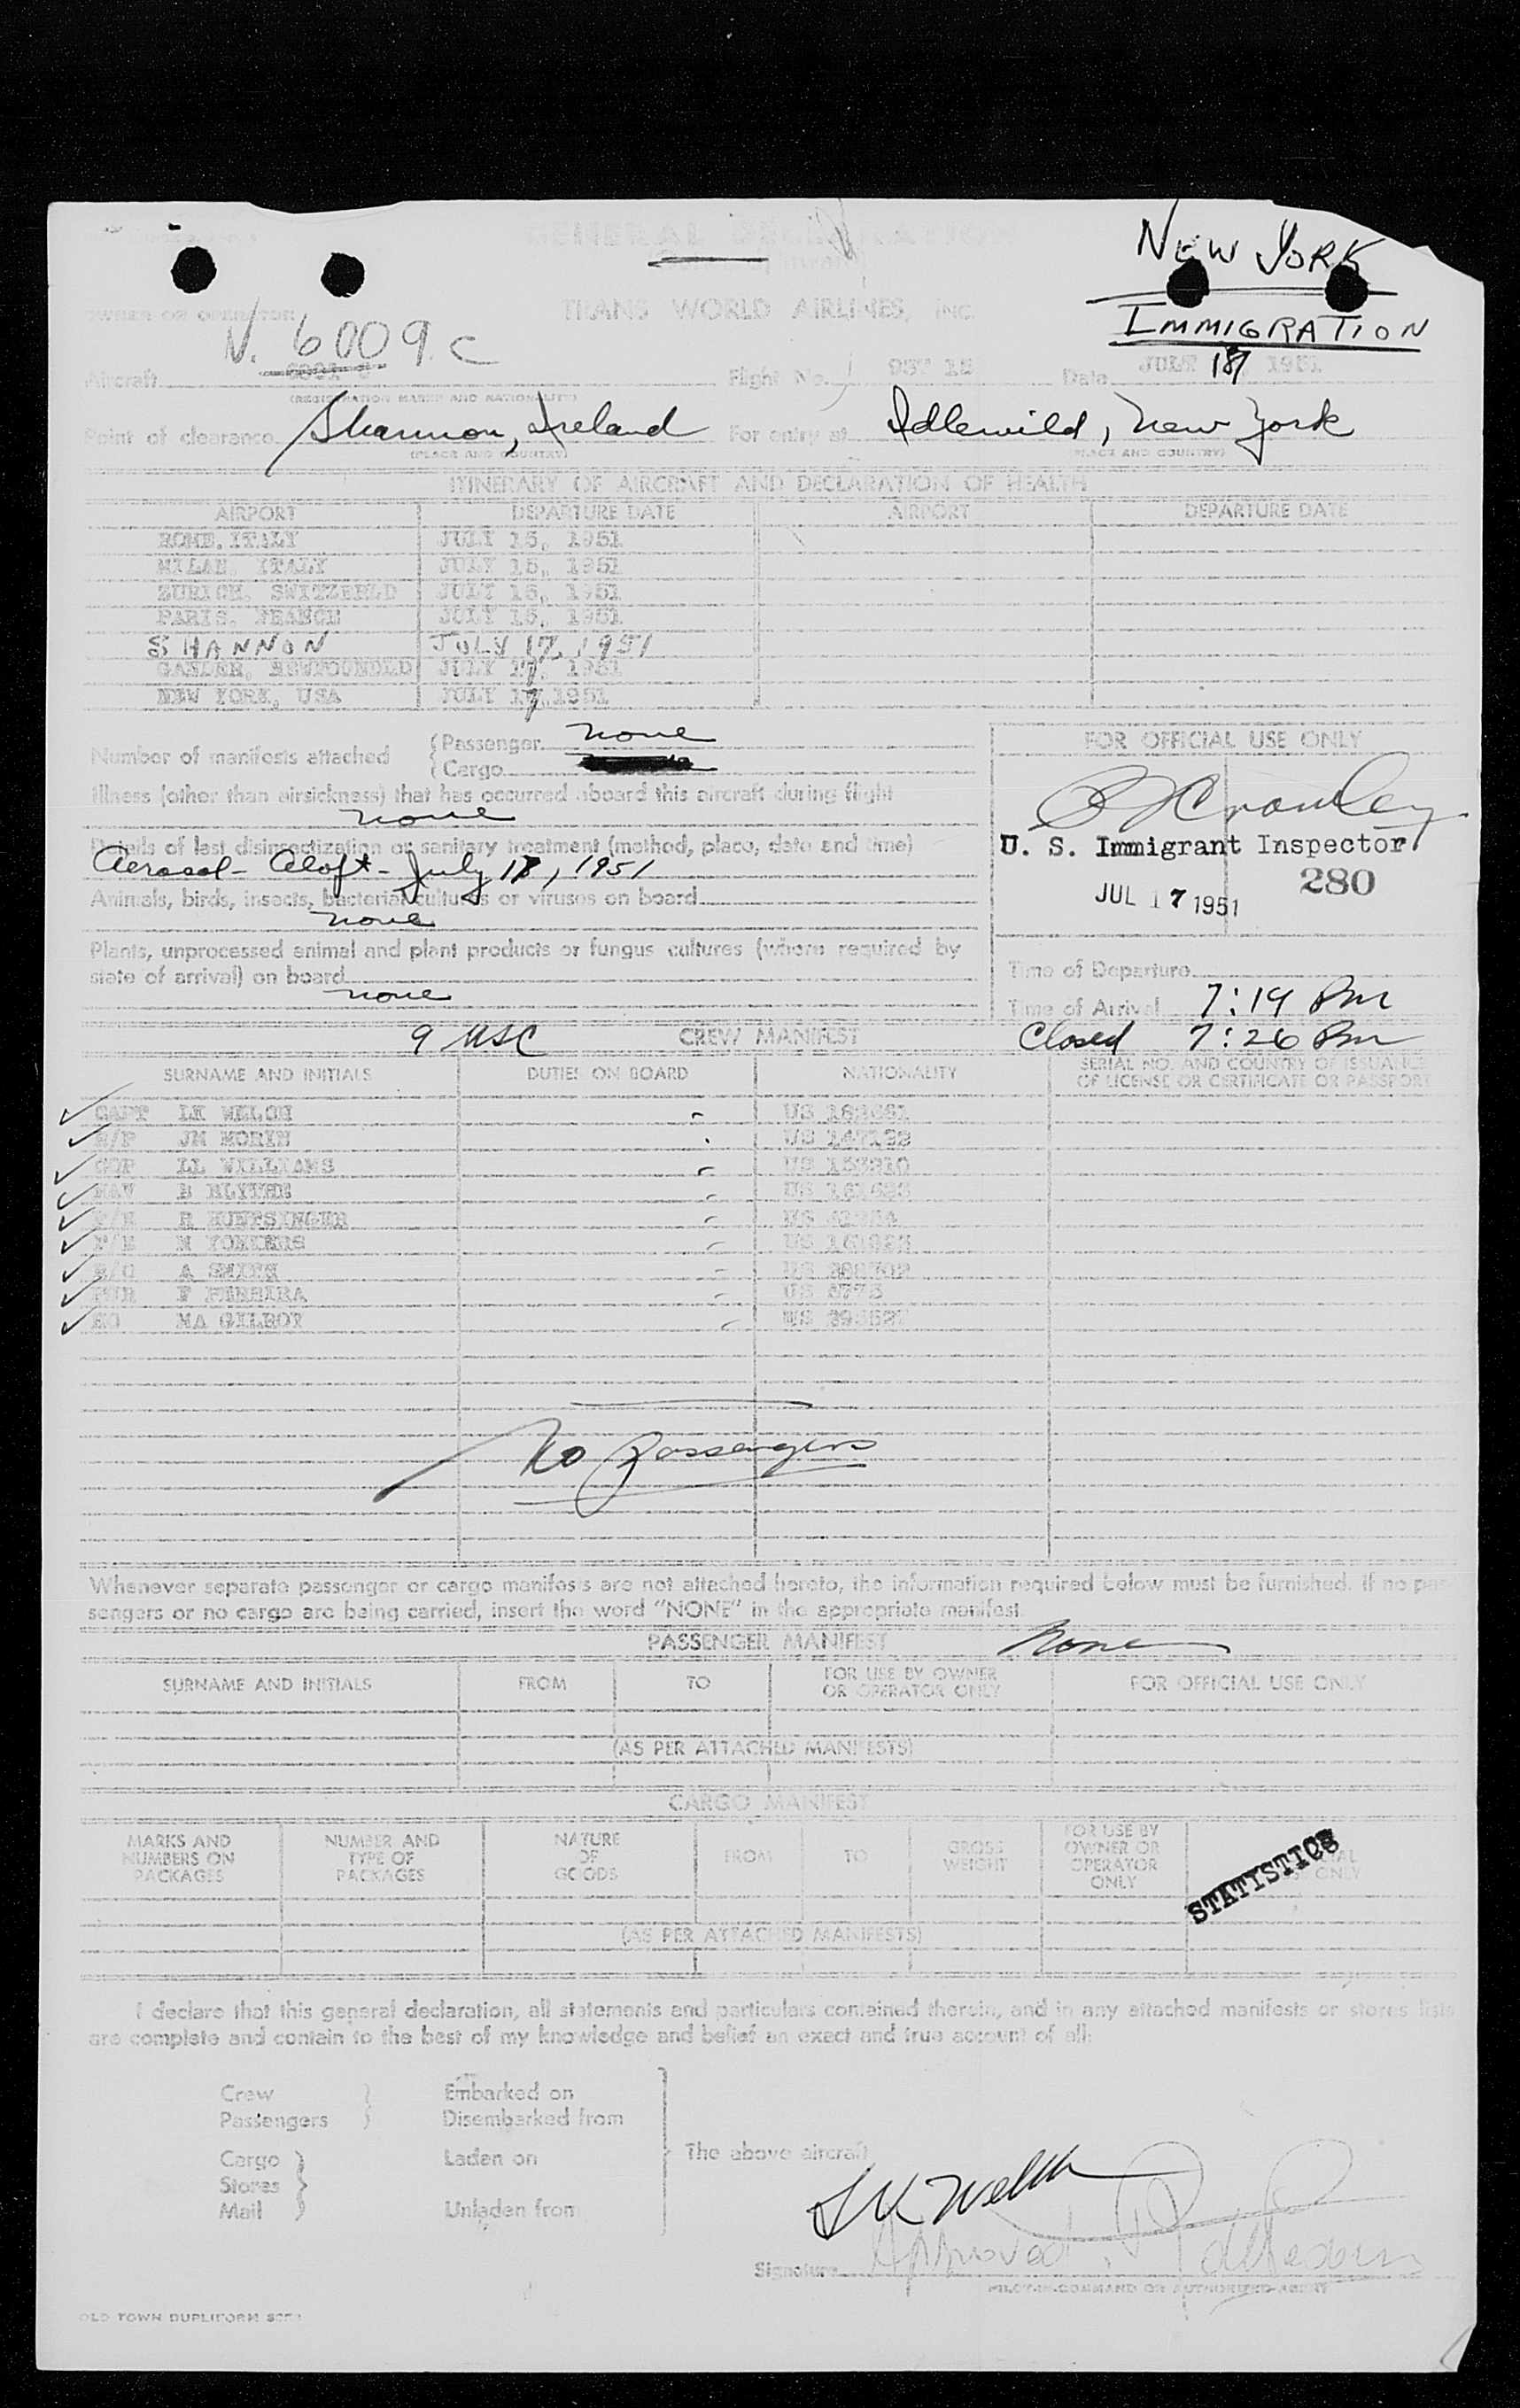 GENERAL DECLARATION
NEW YORK
IMMIGRATION
OWNER OR OPERATOR
TRANS WORLD AIRLINES, INC.
N. 6009 C
Aircraft
Flight No.
Date JULY 17 1951
(REGISTRATION MARKS AND NATIONALITY)
Point of clearance Shannon, Ireland For entry at Idlewild, New York
(PLACE AND COUNTRY) (PLACE AND COUNTRY)
ITINERARY OF AIRCRAFT AND DECLARATION OF HEALTH
AIRPORT DEPARTURE DATE AIRPORT DEPARTURE DATE
ROME, ITALY JULY 15, 1951
MILAN, ITALY JULY 15, 1951
ZURICH, SWITZERLD JULY 15, 1951
PARIS, FRANCE JULY 15, 1951
SHANNON JULY 17, 1951
GANDER, NEWFOUNDLD JULY 17, 1951
NEW YORK, USA JULY 17, 1951
Number of manifests attached { Passenger none
{ Cargo
FOR OFFICIAL USE ONLY
Illness (other than airsickness) that has occurred aboard this aircraft during flight
none
Details of last disinsectization or sanitary treatment (method, place, date and time)
Aerosol - Aloft - July 17, 1951
Crowley
U. S. Immigrant Inspector
280
JUL 17 1951
Animals, birds, insects, bacterial cultures or viruses on board
none
Plants, unprocessed animal and plant products or fungus cultures (where required by
state of arrival) on board
none
Time of Departure
Time of Arrival 7:19 Pm
9 USC CREW MANIFEST Closed 7:26 Pm
SURNAME AND INITIALS DUTIES ON BOARD NATIONALITY SERIAL NO. AND COUNTRY OF ISSUANCE
OF LICENSE OR CERTIFICATE OR PASSPORT
CAPT LK WELCH US
F/P JM MORIN US
COP LL WILLIAMS US
NAV B BLYTHE US
F/E R HUNTSINGER US
F/E N YONKERS US
R/O A SMITH US
PUR F FERREIRA US
HO MA GILROY US
No passengers
Whenever separate passenger or cargo manifests are not attached hereto, the information required below must be furnished. If no pas-
sengers or no cargo are being carried, insert the word "NONE" in the appropriate manifest.
PASSENGER MANIFEST None
SURNAME AND INITIALS FROM TO FOR USE BY OWNER
OR OPERATOR ONLY FOR OFFICIAL USE ONLY
(AS PER ATTACHED MANIFESTS)
CARGO MANIFEST
MARKS AND
NUMBERS ON
PACKAGES
NUMBER AND
TYPE OF
PACKAGES
NATURE
OF
GOODS
FROM
TO
GROSS
WEIGHT
FOR USE BY
OWNER OR
OPERATOR
ONLY
STATISTICS
(AS PER ATTACHED MANIFESTS)
I declare that this general declaration, all statements and particulars contained therein, and in any attached manifests or stores lists
are complete and contain to the best of my knowledge and belief an exact and true account of all:
Crew Embarked on
Passengers Disembarked from
Cargo Laden on
Stores
Mail Unladen from
The above aircraft
LK Welch
Approved
Signature
PILOT-IN-COMMAND OR AUTHORIZED AGENT
OLD TOWN DUPLIFORM